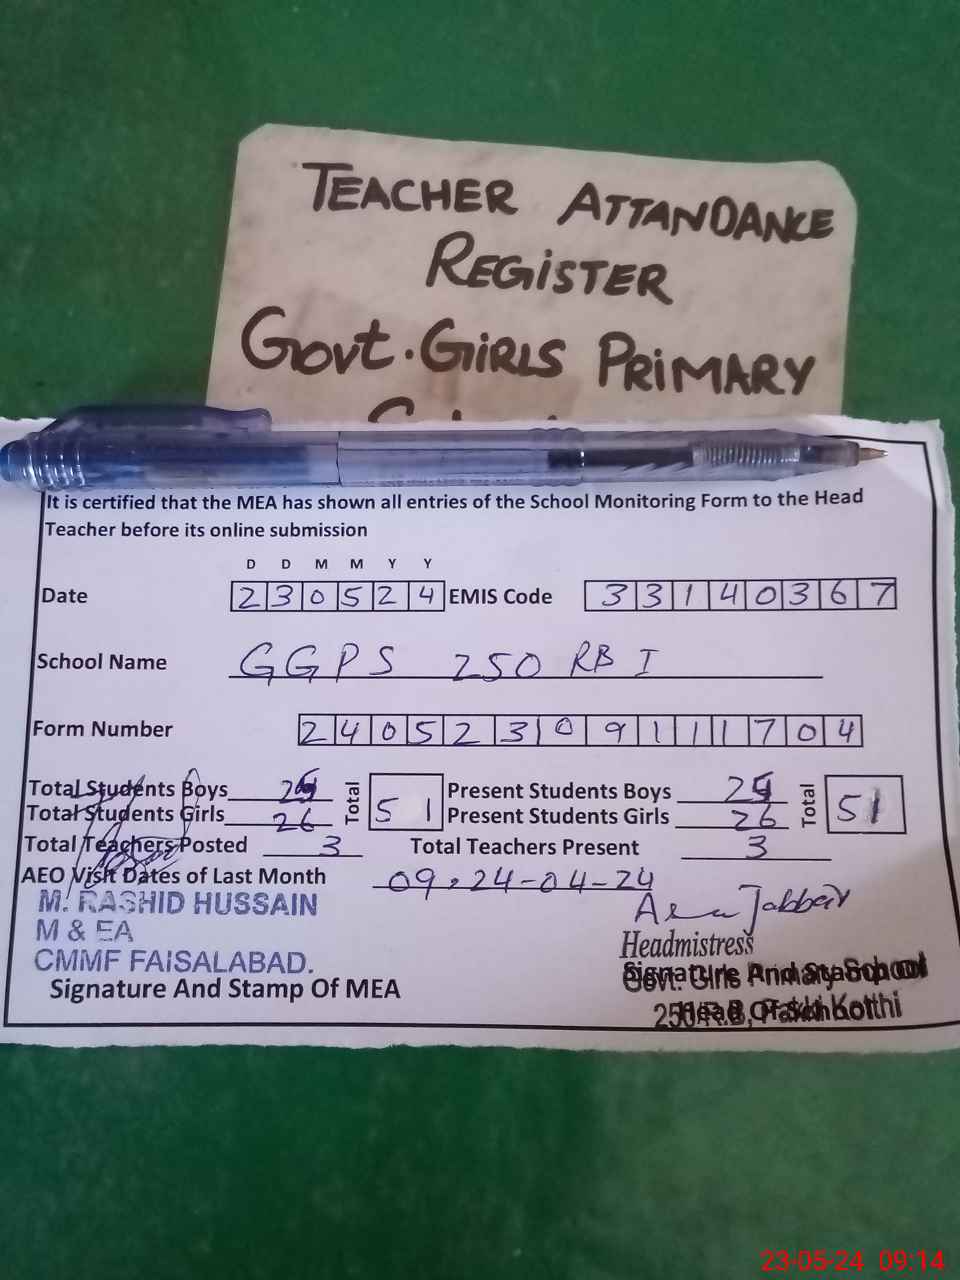 TEACHER ATTANDANCE
REGISTER
Govt. GIRLS PRIMARY
It is certified that the MEA has shown all entries of the School Monitoring Form to the Head
Teacher before its online submission
D D M M Y Y
Date 2 3 0 5 2 4 EMIS Code 3 3 1 4 0 3 6 7
School Name GGPS 250 RB I
Form Number 2 4 0 5 2 3 0 9 1 1 1 7 0 4
Total Students Boys Total 51 Present Students Boys Total 51
Total Students Girls 26 Present Students Girls 26
Total Teachers Posted 3 Total Teachers Present 3
AEO Visit Dates of Last Month 09,24-04-24
M. RASHID HUSSAIN
M & EA
CMMF FAISALABAD.
Signature And Stamp Of MEA
Jabbar
Headmistress
Signature And Stamp Of
Govt. Girls Primary School
Head Of School
250/R.B, Pakki Kotthi
23-05-24 09:14